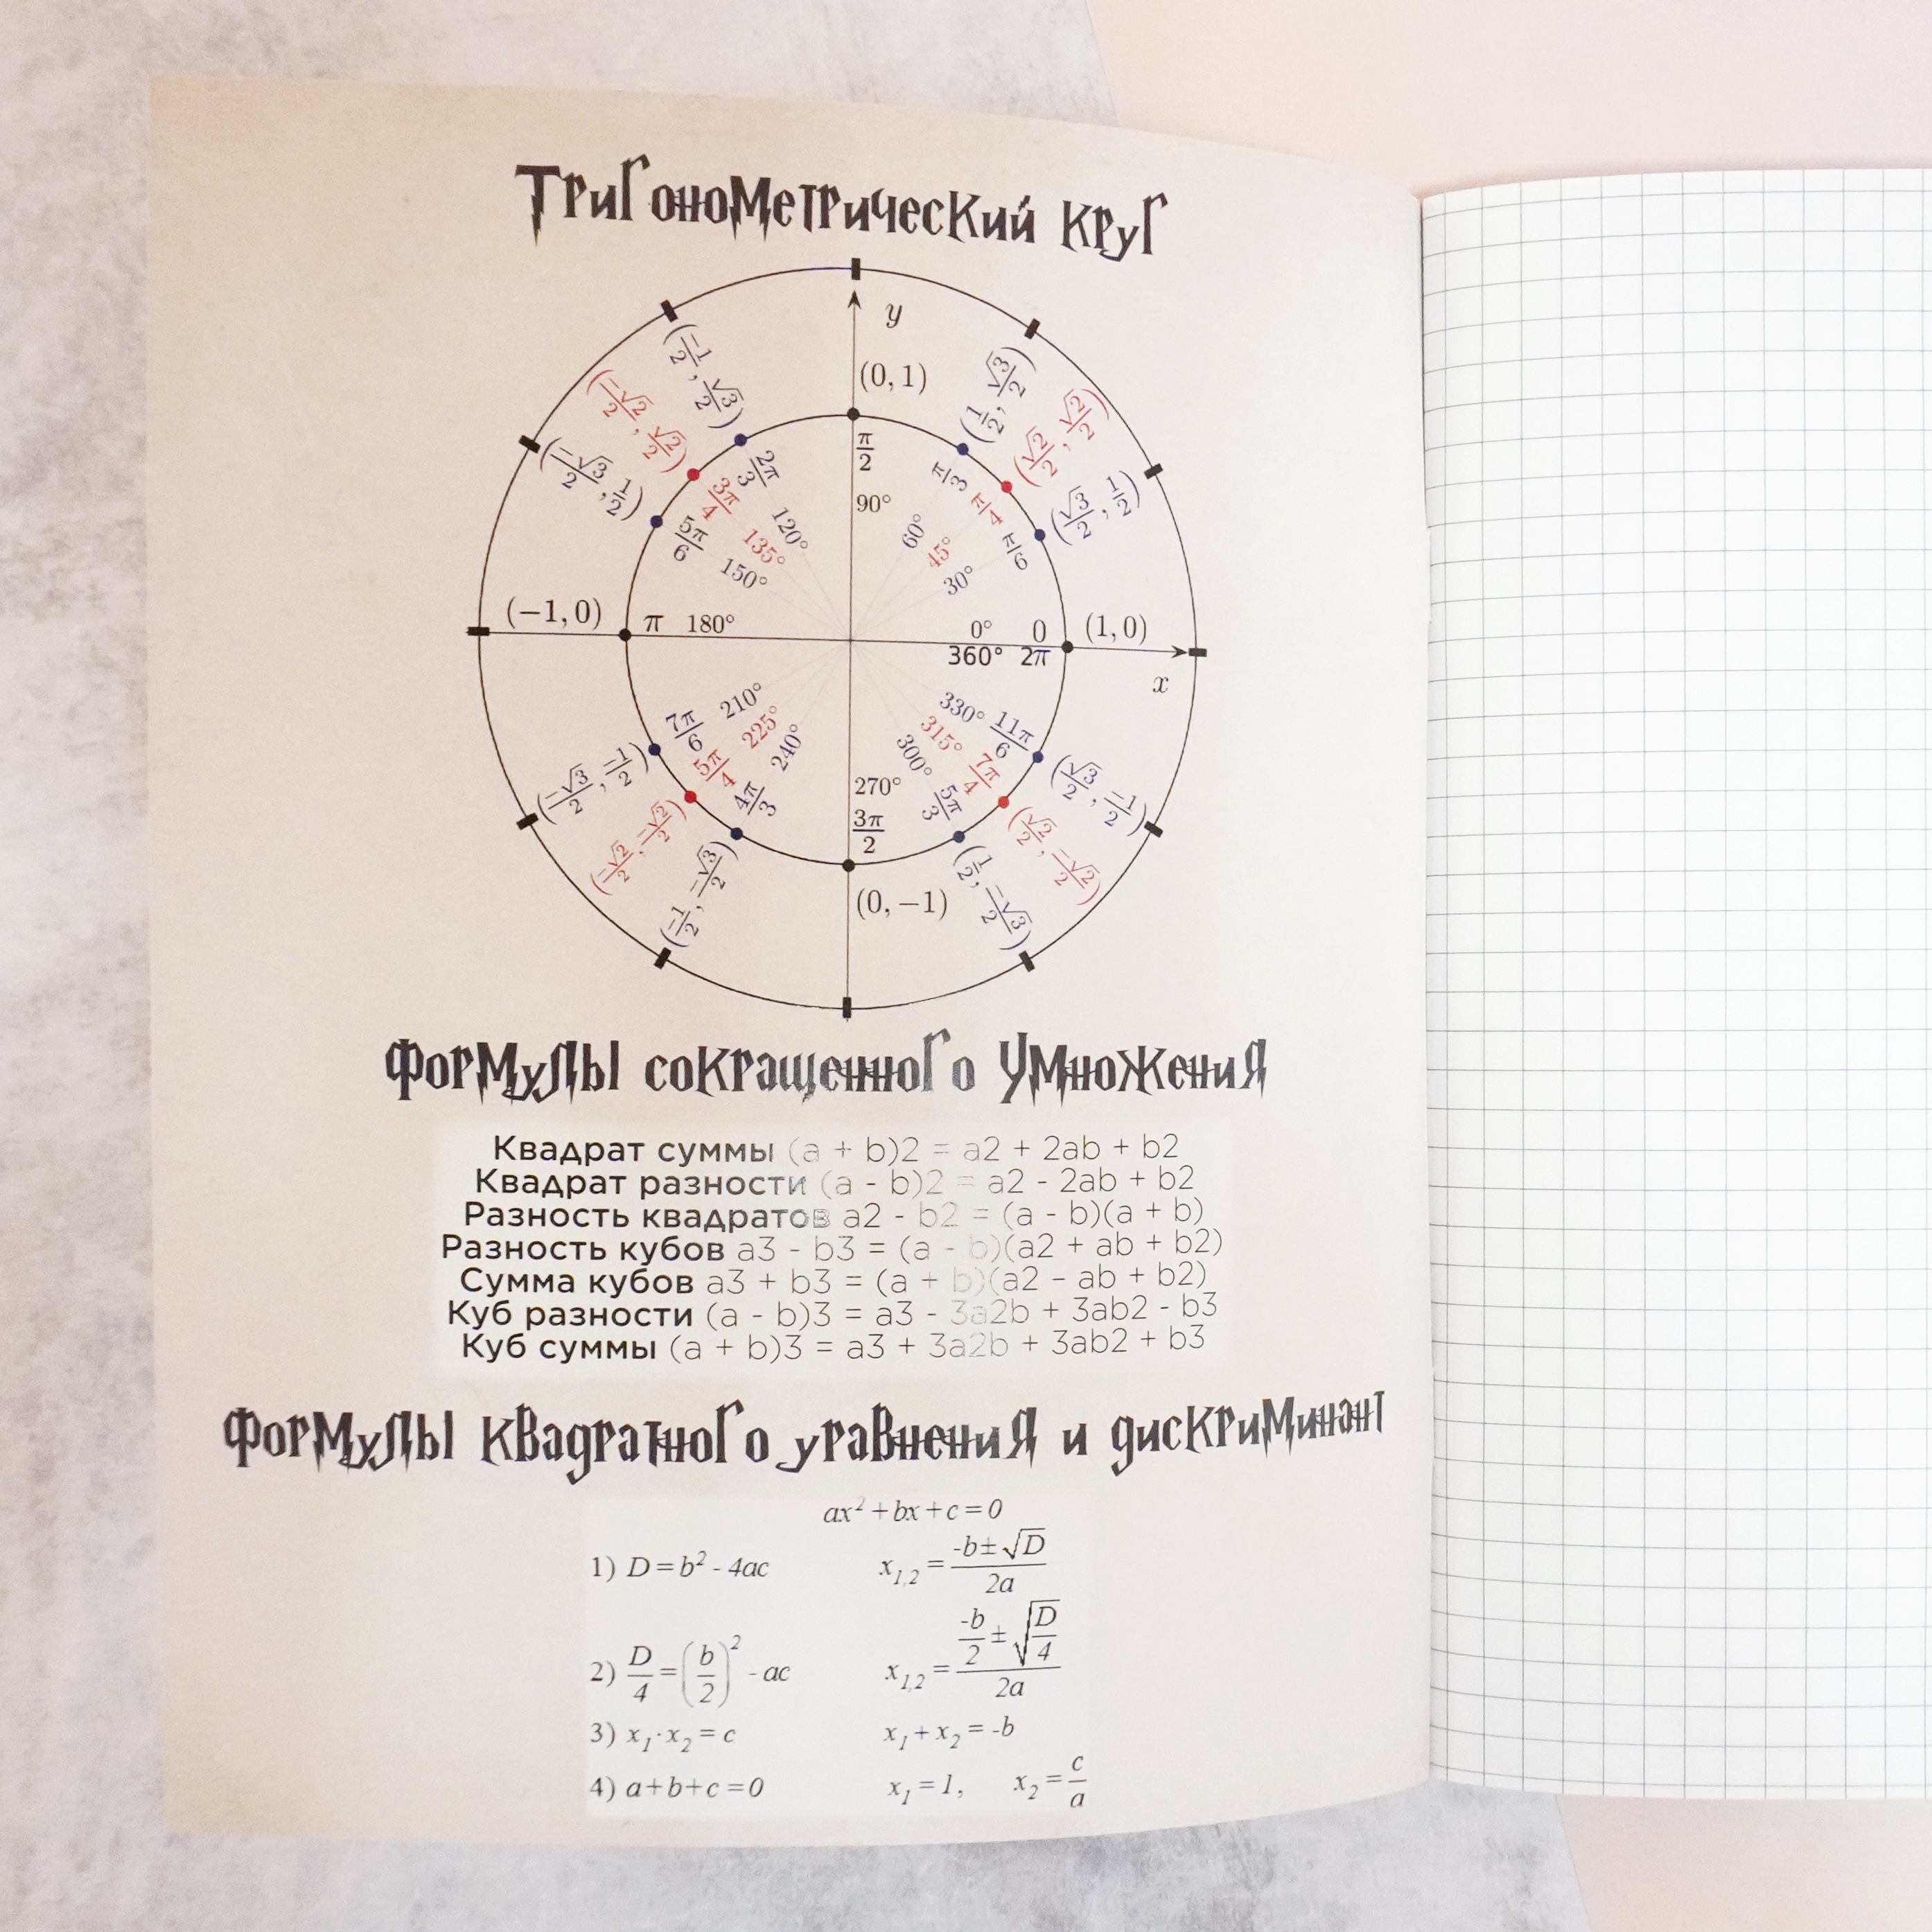 Тригонометрический круг
y
(0, 1)
(-1/2, √3/2) (1/2, √3/2)
(-√2/2, √2/2) (√2/2, √2/2)
(-√3/2, 1/2) (√3/2, 1/2)
2π/3 π/2 π/3
3π/4 π/4
5π/6 π/6
120° 90° 60°
135° 45°
150° 30°
(−1, 0) π 180° 0° 0 (1, 0)
360° 2π
x
210° 330°
7π/6 225° 315° 11π/6
5π/4 240° 300° 7π/4
4π/3 270° 5π/3
3π/2
(-√3/2, -1/2) (√3/2, -1/2)
(-√2/2, -√2/2) (√2/2, -√2/2)
(-1/2, -√3/2) (0, −1) (1/2, -√3/2)
Формулы сокращенного умножения
Квадрат суммы (a + b)2 = a2 + 2ab + b2
Квадрат разности (a - b)2 = a2 - 2ab + b2
Разность квадратов a2 - b2 = (a - b)(a + b)
Разность кубов a3 - b3 = (a - b)(a2 + ab + b2)
Сумма кубов a3 + b3 = (a + b)(a2 - ab + b2)
Куб разности (a - b)3 = a3 - 3a2b + 3ab2 - b3
Куб суммы (a + b)3 = a3 + 3a2b + 3ab2 + b3
Формулы квадратного уравнения и дискриминант
ax² + bx + c = 0
1) D = b² - 4ac x₁,₂ = (-b ± √D)/2a
2) D/4 = (b/2)² - ac x₁,₂ = (-b/2 ± √(D/4))/2a
3) x₁·x₂ = c x₁ + x₂ = -b
4) a + b + c = 0 x₁ = 1, x₂ = c/a